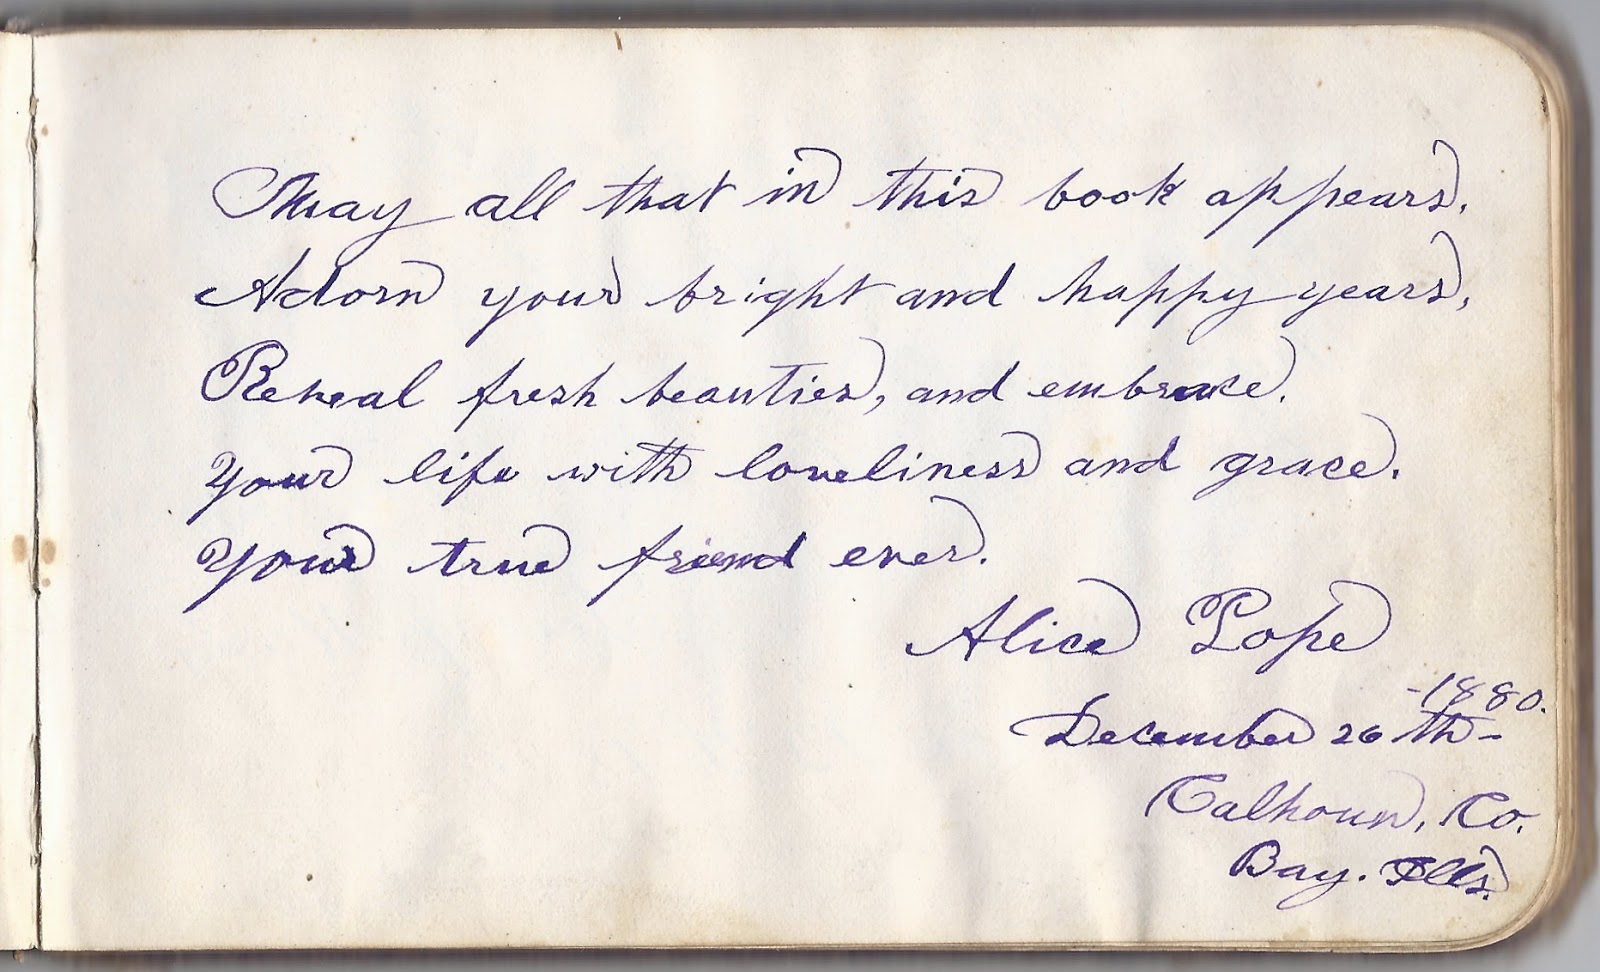 May all that in this book appears,
Adorn your bright and happy years,
Reveal fresh beauties, and embrace.
Your life with loveliness and grace.
Your true friend ever.
Alice Pope
-1880.
December 26th-
Calhoun, Co.
Bay. Ills.